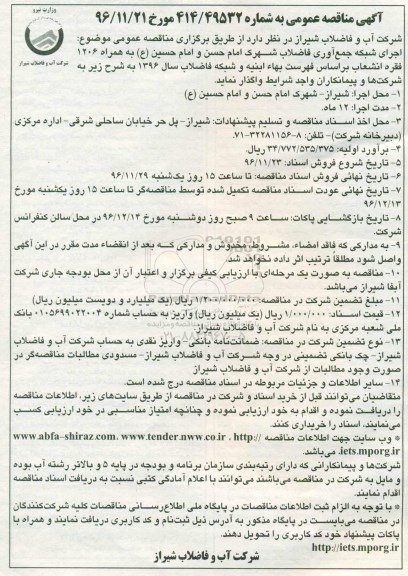 وزارت نیرو
شرکت آب و فاضلاب شیراز
آگهی مناقصه عمومی به شماره ۴۱۴/۴۹۵۳۲ مورخ ۹۶/۱۱/۲۱
شرکت آب و فاضلاب شیراز در نظر دارد از طریق برگزاری مناقصه عمومی موضوع:
اجرای شبکه جمع‌آوری فاضلاب شهرک امام حسن و امام حسین (ع) به همراه ۱۲۰۶
فقره انشعاب براساس فهرست بهاء ابنیه و شبکه فاضلاب سال ۱۳۹۶ به شرح زیر به
شرکت‌ها و پیمانکاران واجد شرایط واگذار نماید.
۱- محل اجرا: شیراز- شهرک امام حسن و امام حسین (ع)
۲- مدت اجرا: ۱۲ ماه.
۳- محل اخذ اسناد مناقصه و تسلیم پیشنهادات: شیراز- پل حر خیابان ساحلی شرقی- اداره مرکزی
(دبیرخانه شرکت)- تلفن: ۸-۳۲۲۸۱۱۵۶-۰۷۱
۴- برآورد اولیه: ۳۴/۷۷۲/۵۳۵/۳۷۵ ریال.
۵- تاریخ شروع فروش اسناد: ۹۶/۱۱/۲۳
۶- تاریخ نهائی فروش اسناد مناقصه: تا ساعت ۱۵ روز یک‌شنبه ۹۶/۱۱/۲۹
۷- تاریخ نهائی عودت اسناد مناقصه تکمیل شده توسط مناقصه‌گر تا ساعت ۱۵ روز یکشنبه مورخ
۹۶/۱۲/۱۳
۸- تاریخ بازگشایی پاکات: ساعت ۹ صبح روز دوشنبه مورخ ۹۶/۱۲/۱۴ در محل سالن کنفرانس
شرکت.
۹- به مدارکی که فاقد امضاء، مشروط، مخدوش و مدارکی که بعد از انقضاء مدت مقرر در این آگهی
واصل شود مطلقا ترتیب اثر داده نخواهد شد.
۱۰- مناقصه به صورت یک مرحله‌ای با ارزیابی کیفی برگزار و اعتبار آن از محل بودجه جاری شرکت
آبفا شیراز می‌باشد.
۱۱- مبلغ تضمین شرکت در مناقصه: ۱/۲۰۰/۰۰۰/۰۰۰ ریال (یک میلیارد و دویست میلیون ریال)
۱۲- قیمت اسناد: ۱/۰۰۰/۰۰۰ ریال (یک میلیون ریال) واریز به حساب شماره ۰۱۰۵۶۹۹۰۲۲۰۰۴ بانک
ملی شعبه مرکزی به نام شرکت آب و فاضلاب شیراز.
۱۳- نوع تضمین شرکت در مناقصه: ضمانت‌نامه بانکی- واریز نقدی به حساب شرکت آب و فاضلاب
شیراز- چک بانکی تضمینی در وجه شرکت آب و فاضلاب شیراز- مسدودی مطالبات مناقصه‌گر در
صورت وجود مطالبات از شرکت آب و فاضلاب شیراز
۱۴- سایر اطلاعات و جزئیات مربوطه در اسناد مناقصه درج شده است.
متقاضیان می‌توانند قبل از خرید اسناد و شرکت در مناقصه از طریق سایت‌های زیر، اطلاعات مناقصه
را دریافت نموده و اقدام به خود ارزیابی نموده و چنانچه امتیاز مناسبی در خود ارزیابی کسب
می‌نمایند، اسناد را خریداری کنند.
* وب سایت جهت اطلاعات مناقصه www.abfa-shiraz.com، www.tender.nww.co.ir ، http://
iets.mporg.ir می‌باشد.
شرکت‌ها و پیمانکارانی که دارای رتبه‌بندی سازمان برنامه و بودجه در پایه ۵ و بالاتر رشته آب بوده
و مایل به شرکت در مناقصه می‌باشند می‌توانند با اعلام آمادگی کتبی نسبت به دریافت اسناد مناقصه
اقدام نمایند.
* با توجه به الزام ثبت اطلاعات مناقصات در پایگاه ملی اطلاع‌رسانی مناقصات کلیه شرکت‌کنندگان
در مناقصه می‌بایست در پایگاه مذکور به آدرس ذیل ثبت‌نام و کد کاربری دریافت نمایند و همراه با
پاکات پیشنهاد خود کد کاربری را تحویل دهند.
http://iets.mporg.ir
شرکت آب و فاضلاب شیراز